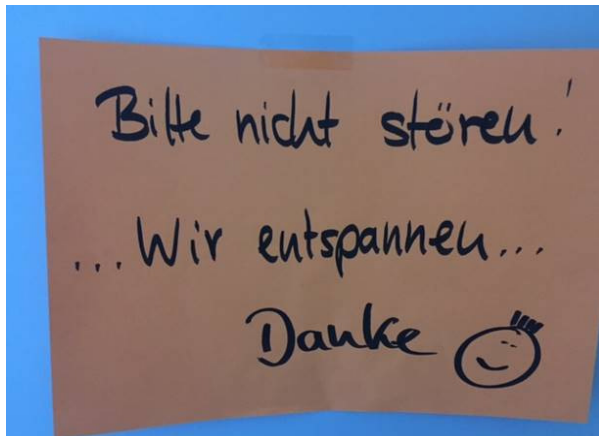 Bitte nicht stören!
...Wir entspannen...
Danke